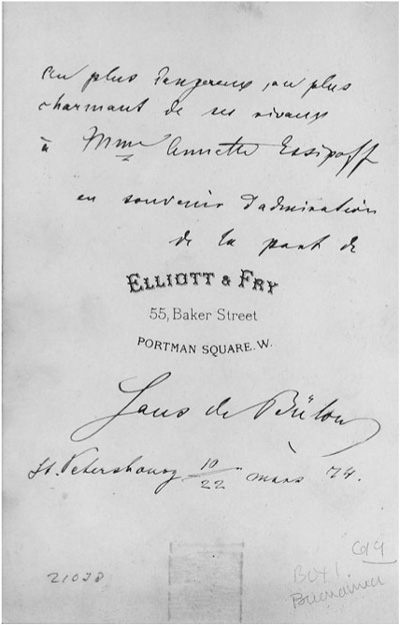 au plus dangereux, au plus
charmant de ses rivaux
à Mme Annette Essipoff
en souvenir d'admiration
de la part de
ELLIOTT & FRY
55, Baker Street
PORTMAN SQUARE. W.
Hans de Bülow
St. Petersbourg 10/22 mars 74.
21028
619
Box 1